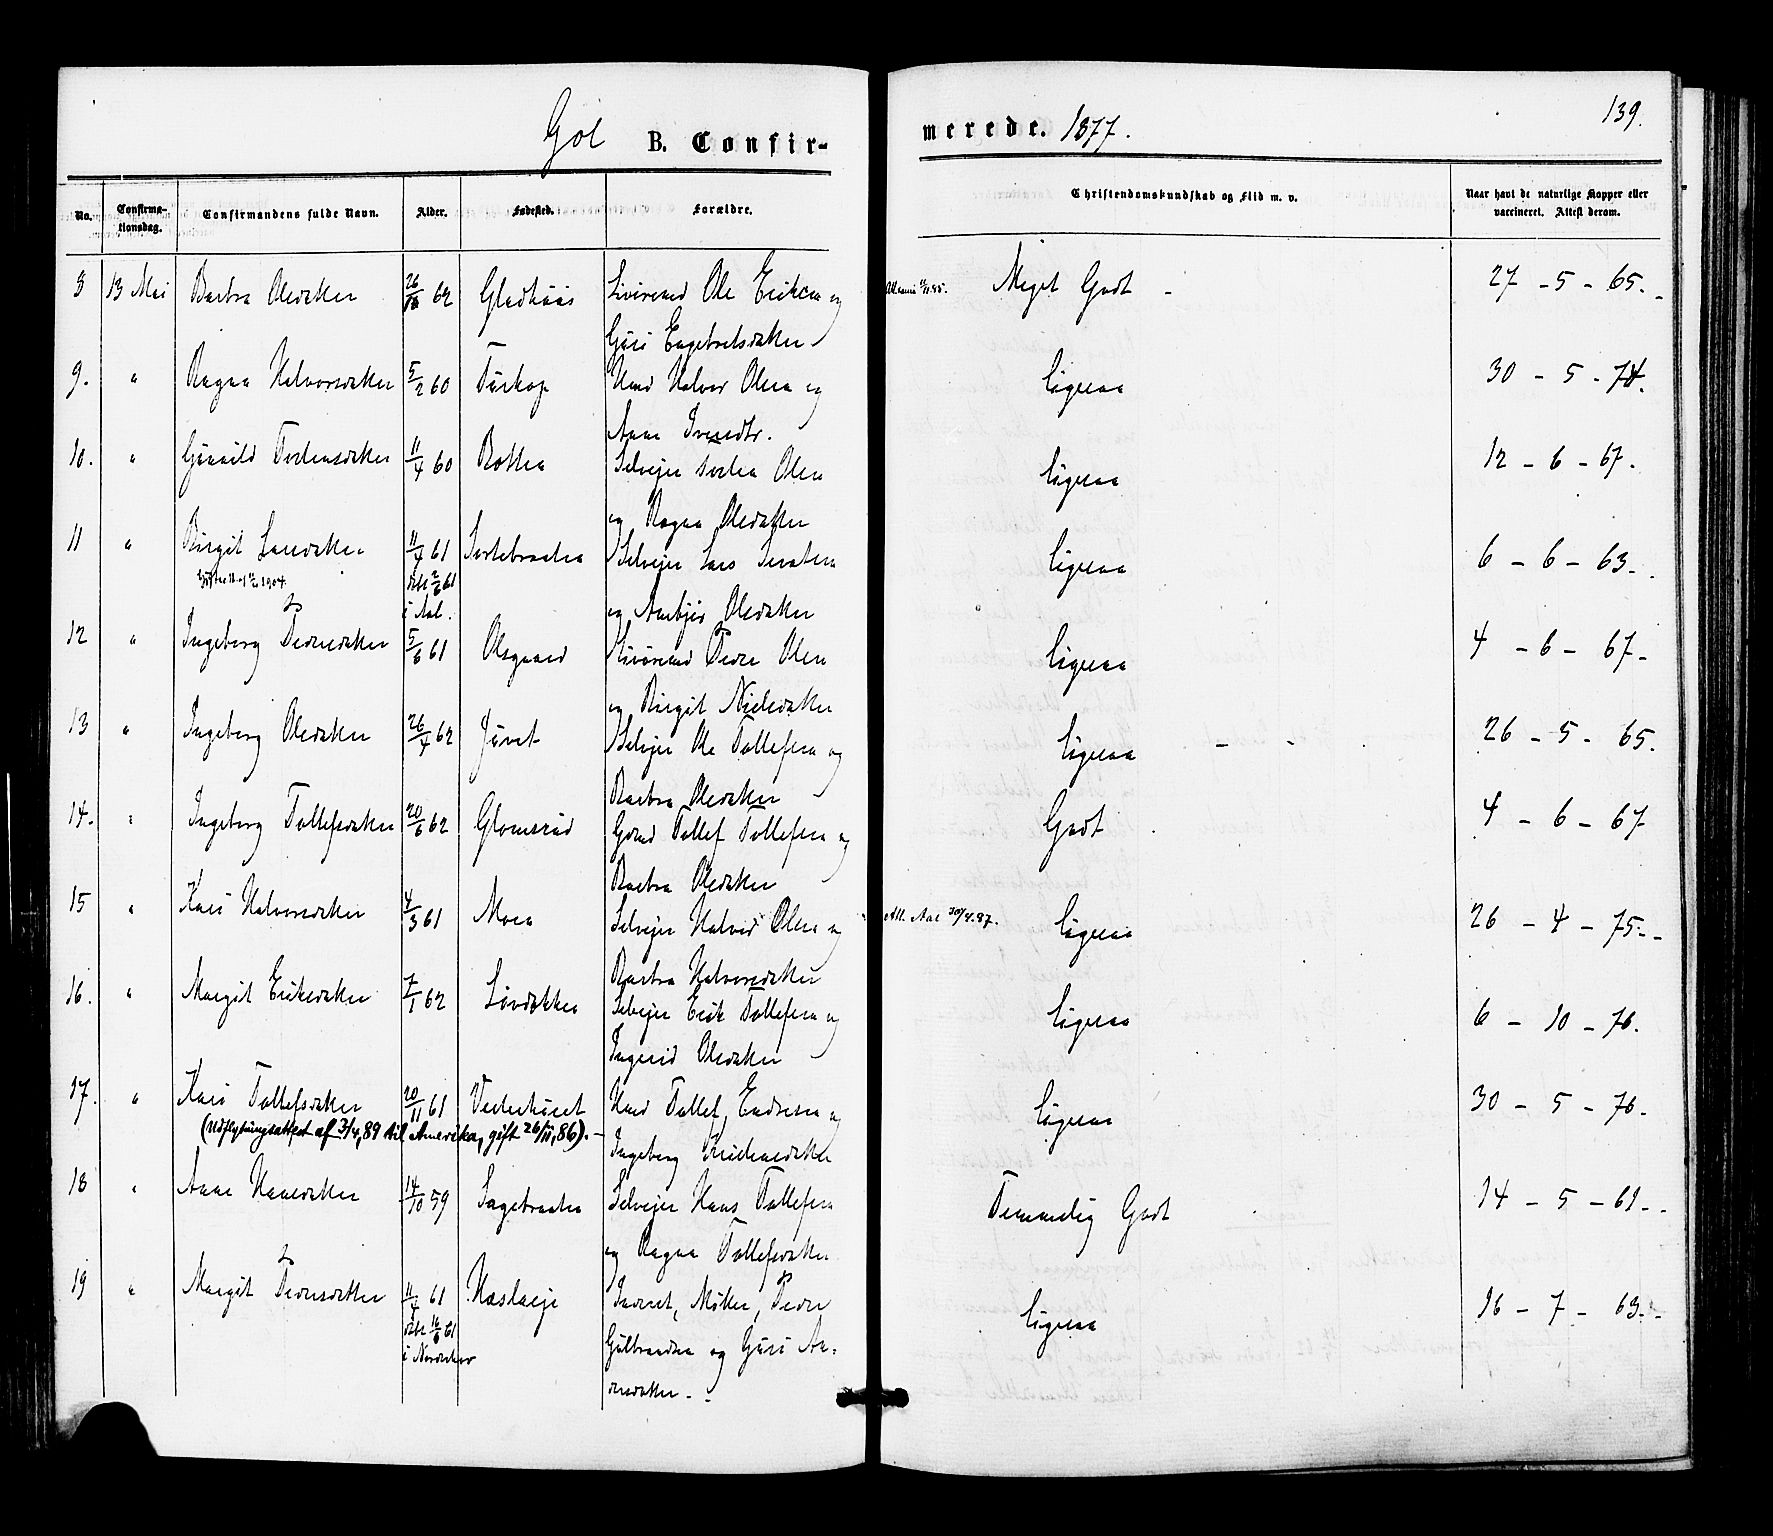 Gol B. Confir-
merede. 1877.
139.
No. Confirma-tionsdag. Confirmandens fulde Navn. Alder. Fødested. Forældre. Christendomskundskab og Flid m. v. Naar havt de naturlige Kopper eller vaccineret. Attest derom.
8 13 Mai Barbra Olesdatter 26/12 62 Gladhuus Ole Eriksen og Meget Godt - 27 - 5 - 65.
Guri Engebretsdatter
9. " Ragna Halvorsdatter 5/2 60 Turkop Hmd Halvor Olsen og Ligesaa 30 - 5 - 74.
Anne Iversdtr.
10. " Gunnild Torstensdatter 11/4 60 Rotten Selvejer Olsen Ligesaa 12 - 6 - 67.
og Ragna Olesdatter
11 " Birgit Larsdatter 11/4 61 Selvejer Lars Ligesaa 6 - 6 - 63.
1904. døbt 2/6 61
i Aal. og Olesdatter
12 " Ingeborg Pedersdatter 5/6 61 Olsgaard Peder Olsen Ligesaa 4 - 6 - 67.
og Birgit Nielsdatter
13 " Ingeborg Olesdatter 26/4 62 Juvet Selvejer Ole Tollefsen og Ligesaa - - 26 - 5 - 65.
Barbra Olesdatter
14. " Ingeborg Tollefsdatter 20/6 62 Glomsrud Gbmd Tollef Tollefsen og Godt 4 - 6 - 67
Barbra Olesdatter
15 " Kari Halvorsdatter 4/3 61 Moen Selvejer Halvor Olsen og Att. Aal 30/4.87. Ligesaa 26 - 4 - 75.
Barbra Halvorsdatter
16. " Margit Eriksdatter 7/1 62 Selvejer Erik Tollefsen og Ligesaa 6 - 10 - 76.
Ingerid Olesdatter
17. " Kari Tollefsdatter 20/11 61 Hmd Tollef Endresen og Ligesaa 30 - 5 - 76.
(Udflytningsattest af 3/4, 89 til Amerika, gift 26/11, 86). -
Ingeborg
18 " Anne Hansdatter 14/10 59 Sagebraaten Selvejer Hans Tollefsen Temmelig Godt 14 - 5 - 61.
og Ragna Tollefsdatter
19 " Margit Pedersdatter 11/4 61 Haslaeje Inderst, Møller, Peder Ligesaa 16 - 7 - 63.
døbt 16/6 61 Gulbrandsen og Guri An-
i dersdatter. -